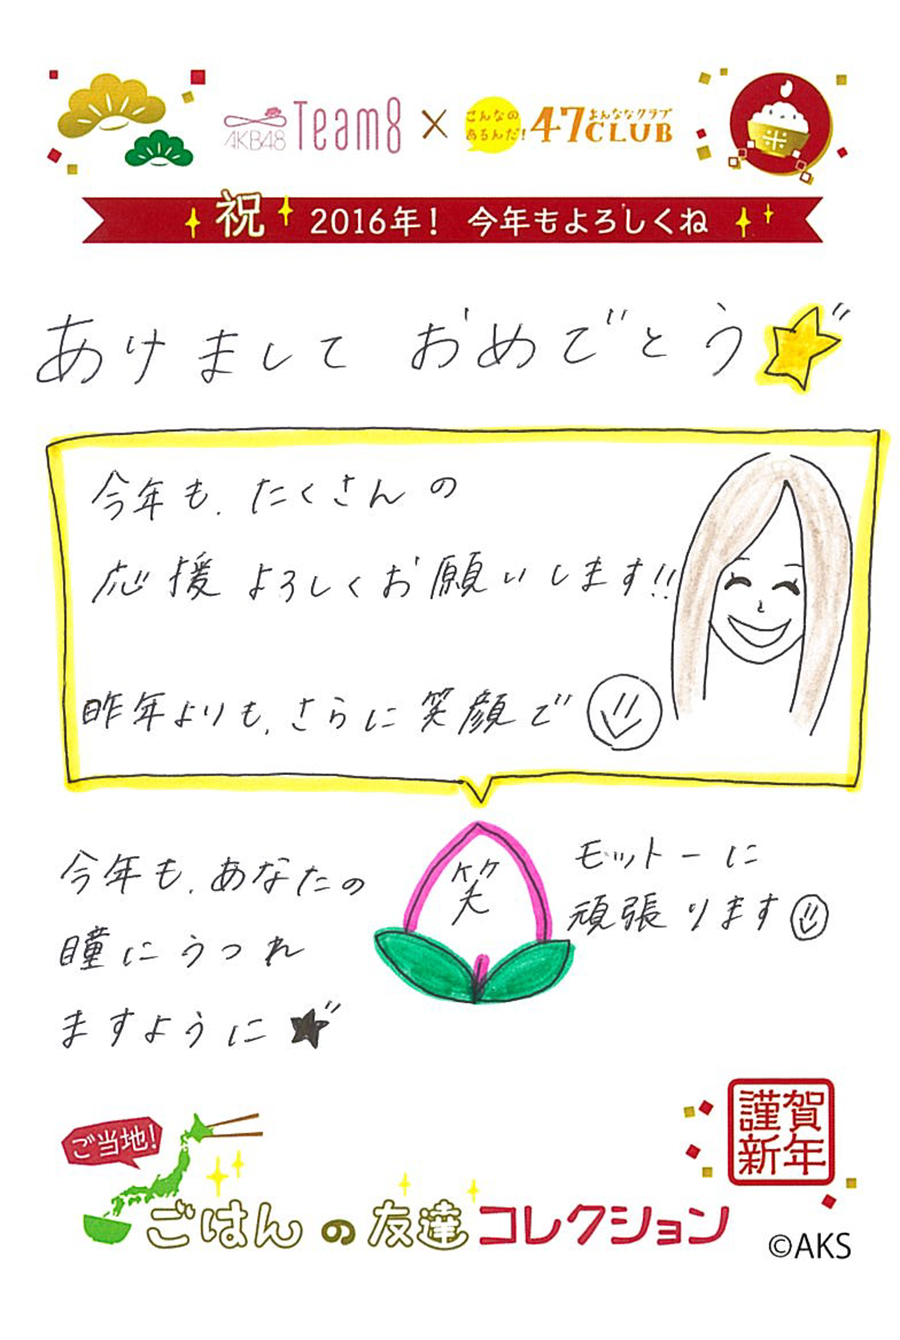 AKB48 Team8 × こんなのあるんだ! 47CLUB よんななクラブ
米
祝 2016年! 今年もよろしくね
あけまして おめでとう
今年も、たくさんの
応援よろしくお願いします!!
昨年よりも、さらに笑顔で
笑
モットーに
頑張ります
今年も、あなたの
瞳にうつれ
ますように
謹賀
新年
ご当地!
ごはんの友達コレクション
©AKS